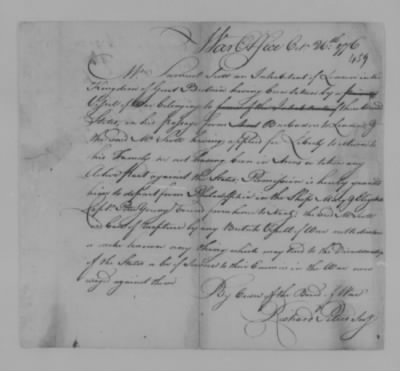 War Office Oct. 26th 1776
159
Mr. Samuel Scott an Inhabitant of London in the
Kingdom of Great Britain having been taken by a
Vessell of War belonging to the United
States, in his passage from Barbadoes to London &
the said Mr. Scott having applied for Liberty to return to
his Family & not having been in Arms or taken any
Active Part against the States, Permission is hereby granted
him to depart from Philadelphia in the Ship Mary & Elizabeth
Capt. Young
in Case of Capture by any British Vessell of War not to disclose
or make known any thing which may tend to the Disadvantage
of the States or be of Service to their Enemies in the War now
waged against them
By Order of the Board of War
Richard Peters Secy